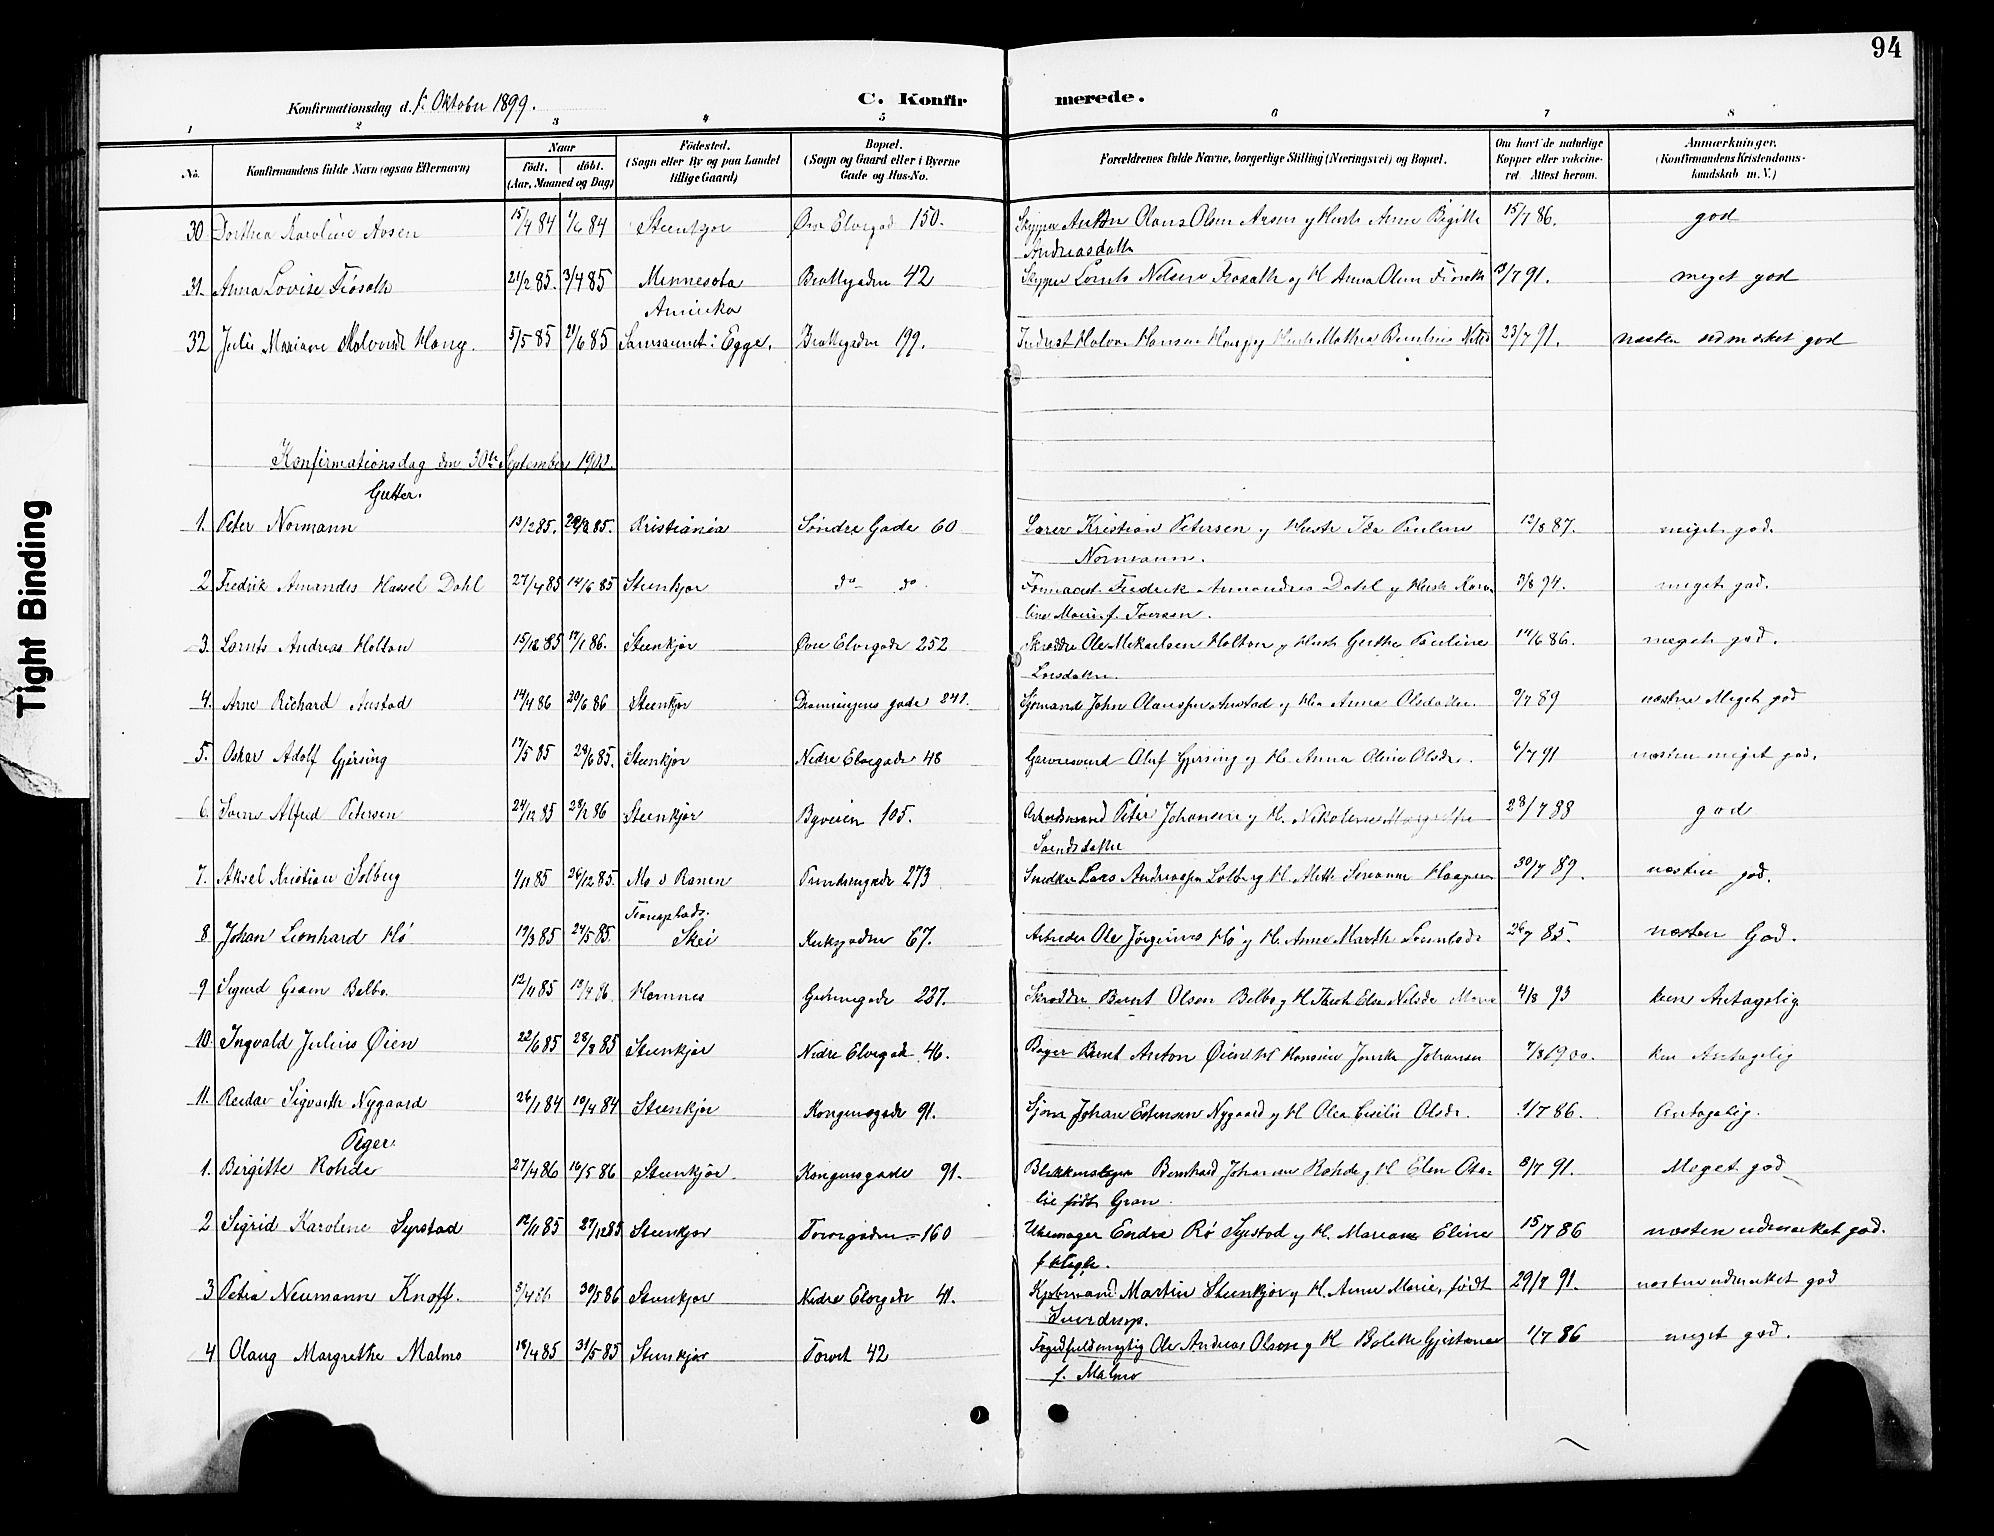 94
Tight Binding
Konfirmationsdag d. 1. Oktober 1899.
C. Konfirmerede.
1 2 3 4 5 6 7 8
No. Konfirmandens fulde Navn (ogsaa Efternavn) Naar Født. døbt. (Aar, Maaned og Dag) Fødested. (Sogn eller By og paa Landet tillige Gaard) Bopæl. (Sogn og Gaard eller i Byerne Gade og Hus-No. Forældrenes fulde Navne, borgerlige Stilling (Næringsvei) og Bopæl. Om havt de naturlige Kopper eller vakcineret. Attest herom. Anmærkninger. (Konfirmandens Kristendomskundskab m. V.)
30 Dorthea Karoline Aasen 15/4 84 1/6 84 Steenkjær Øvre Elvegad 150. Skipper Anton Olaus Olsen Aasen og Hustr Anne Birgitte 15/7 86. god
Andreasdatter
31. Anna Lovise Frøseth 21/2 85. 3/4 85 Minnesota Brattegaden 42 Skipper Lornts Nelsen /7 91. meget god
Amerika
32 Julie Mariane Haug. 5/5 85 21/6 85 i Egge. Brattegaden 199. 23/7 91. næsten udmærket god
Konfirmationsdag den 30te September 1900.
Gutter.
1. Peter Normann 13/2 85. Kristiania Søndre Gade 60 Lærer Kristian Petersen og Hustr Ida Pauline 12/8 87. meget god.
Normann.
2 Fredrik Amandus Hassel Dahl 27/4 85 14/6 85 Steenkjær do do. Fredrik Amandus Dahl og Hustr Karoline Marie f. Iversen. 3/8 94. meget god.
3. Lornts Andreas Holtan 15/12 85 17/1 86. Steenkjær Øvre Elvegade 252 Skrædder Ole Mikaelsen Holtan og Hustr Pauline 14/6 86. meget god.
Larsdatter.
4. Arne Richard Austad 14/4 86 20/6 86 Steenkjær Dronningens gade 241. Sjømand John Austad og H. Anna Olsdatter. 9/7 89 næsten Meget god
5. Oskar Adolf Gjersing 17/5 85 28/6 85. Steenkjær Nedre Elvegade 48 Garversvend Oluf Gjersing og H. Anna Oline Olsdr. 6/7 91 næsten meget god.
6. Svein Alfred Petersen 24/12 85 28/2 86 Steenkjær Byveien 105. Arbeidsmand Peter Johansen og H. Nikoline Margrethe 28/7 88 god
7. Aksel Kristian Solberg 1/11 85 26/12 85. Mo i Ranen 273 Snedker Lars Solberg H. 30/7 89. næsten god.
8 Johan Leonhard Hø 19/3 85 24/5 85. Skei Kirkegaden 67. Arbeider Ole Jørginus Hø og H. Anne Marth 26/7 85. næsten God.
9 Sigurd Belbo. 12/11 85 18/4 86. Hemnes 237. Skrædder Bernt Olson Belbo og H 4/8 93 kun Antagelig
10. Ingvald Julius Øien 22/6 85 28/8 85 Steenkjær Nedre Elvegade 46. Bager Bernt Anton Øien H Hansine Johansen 7/8 1900. kun Antagelig
11. Reidar Sigvarth Nygaard 26/1 84 10/4 84 Steenkjær Kongensgade 91. Sjøm Johan Estensen Nygaard og H Olea Cecilie Olsdr. 1/7 86. Antagelig.
Piger.
1. Birgitte Rohde 27/4 86 16/5 86 Steenkjær. Kongensgade 91. Bernhard Johansen Rohde og H Elen 8/7 91. Meget god
født Gran.
2 Sigrid Karoline Syrstad 12/11 85 27/12 85 Steenkjær Torvegaden 160 Uhrmager Endre Rø Syrstad og H. Mariane Eline 15/7 86 næsten udmærket god.
3 Petra Neumann Knoff. 3/4 86 30/5 86 Steenkjær Nedre Elvegade 41. Kjøbmand Martin Steenkjær og H. Anne Marie, født 29/7 91. næsten udmærket god
Sverdrup.
4 Olaug Margrethe Malmo 18/4 85 31/5 85 Steenkjær Torvet 42 Fogedfuldmægtig Ole Andreas Olsen og H Bolette 1/7 86 meget god.
f. Malmo